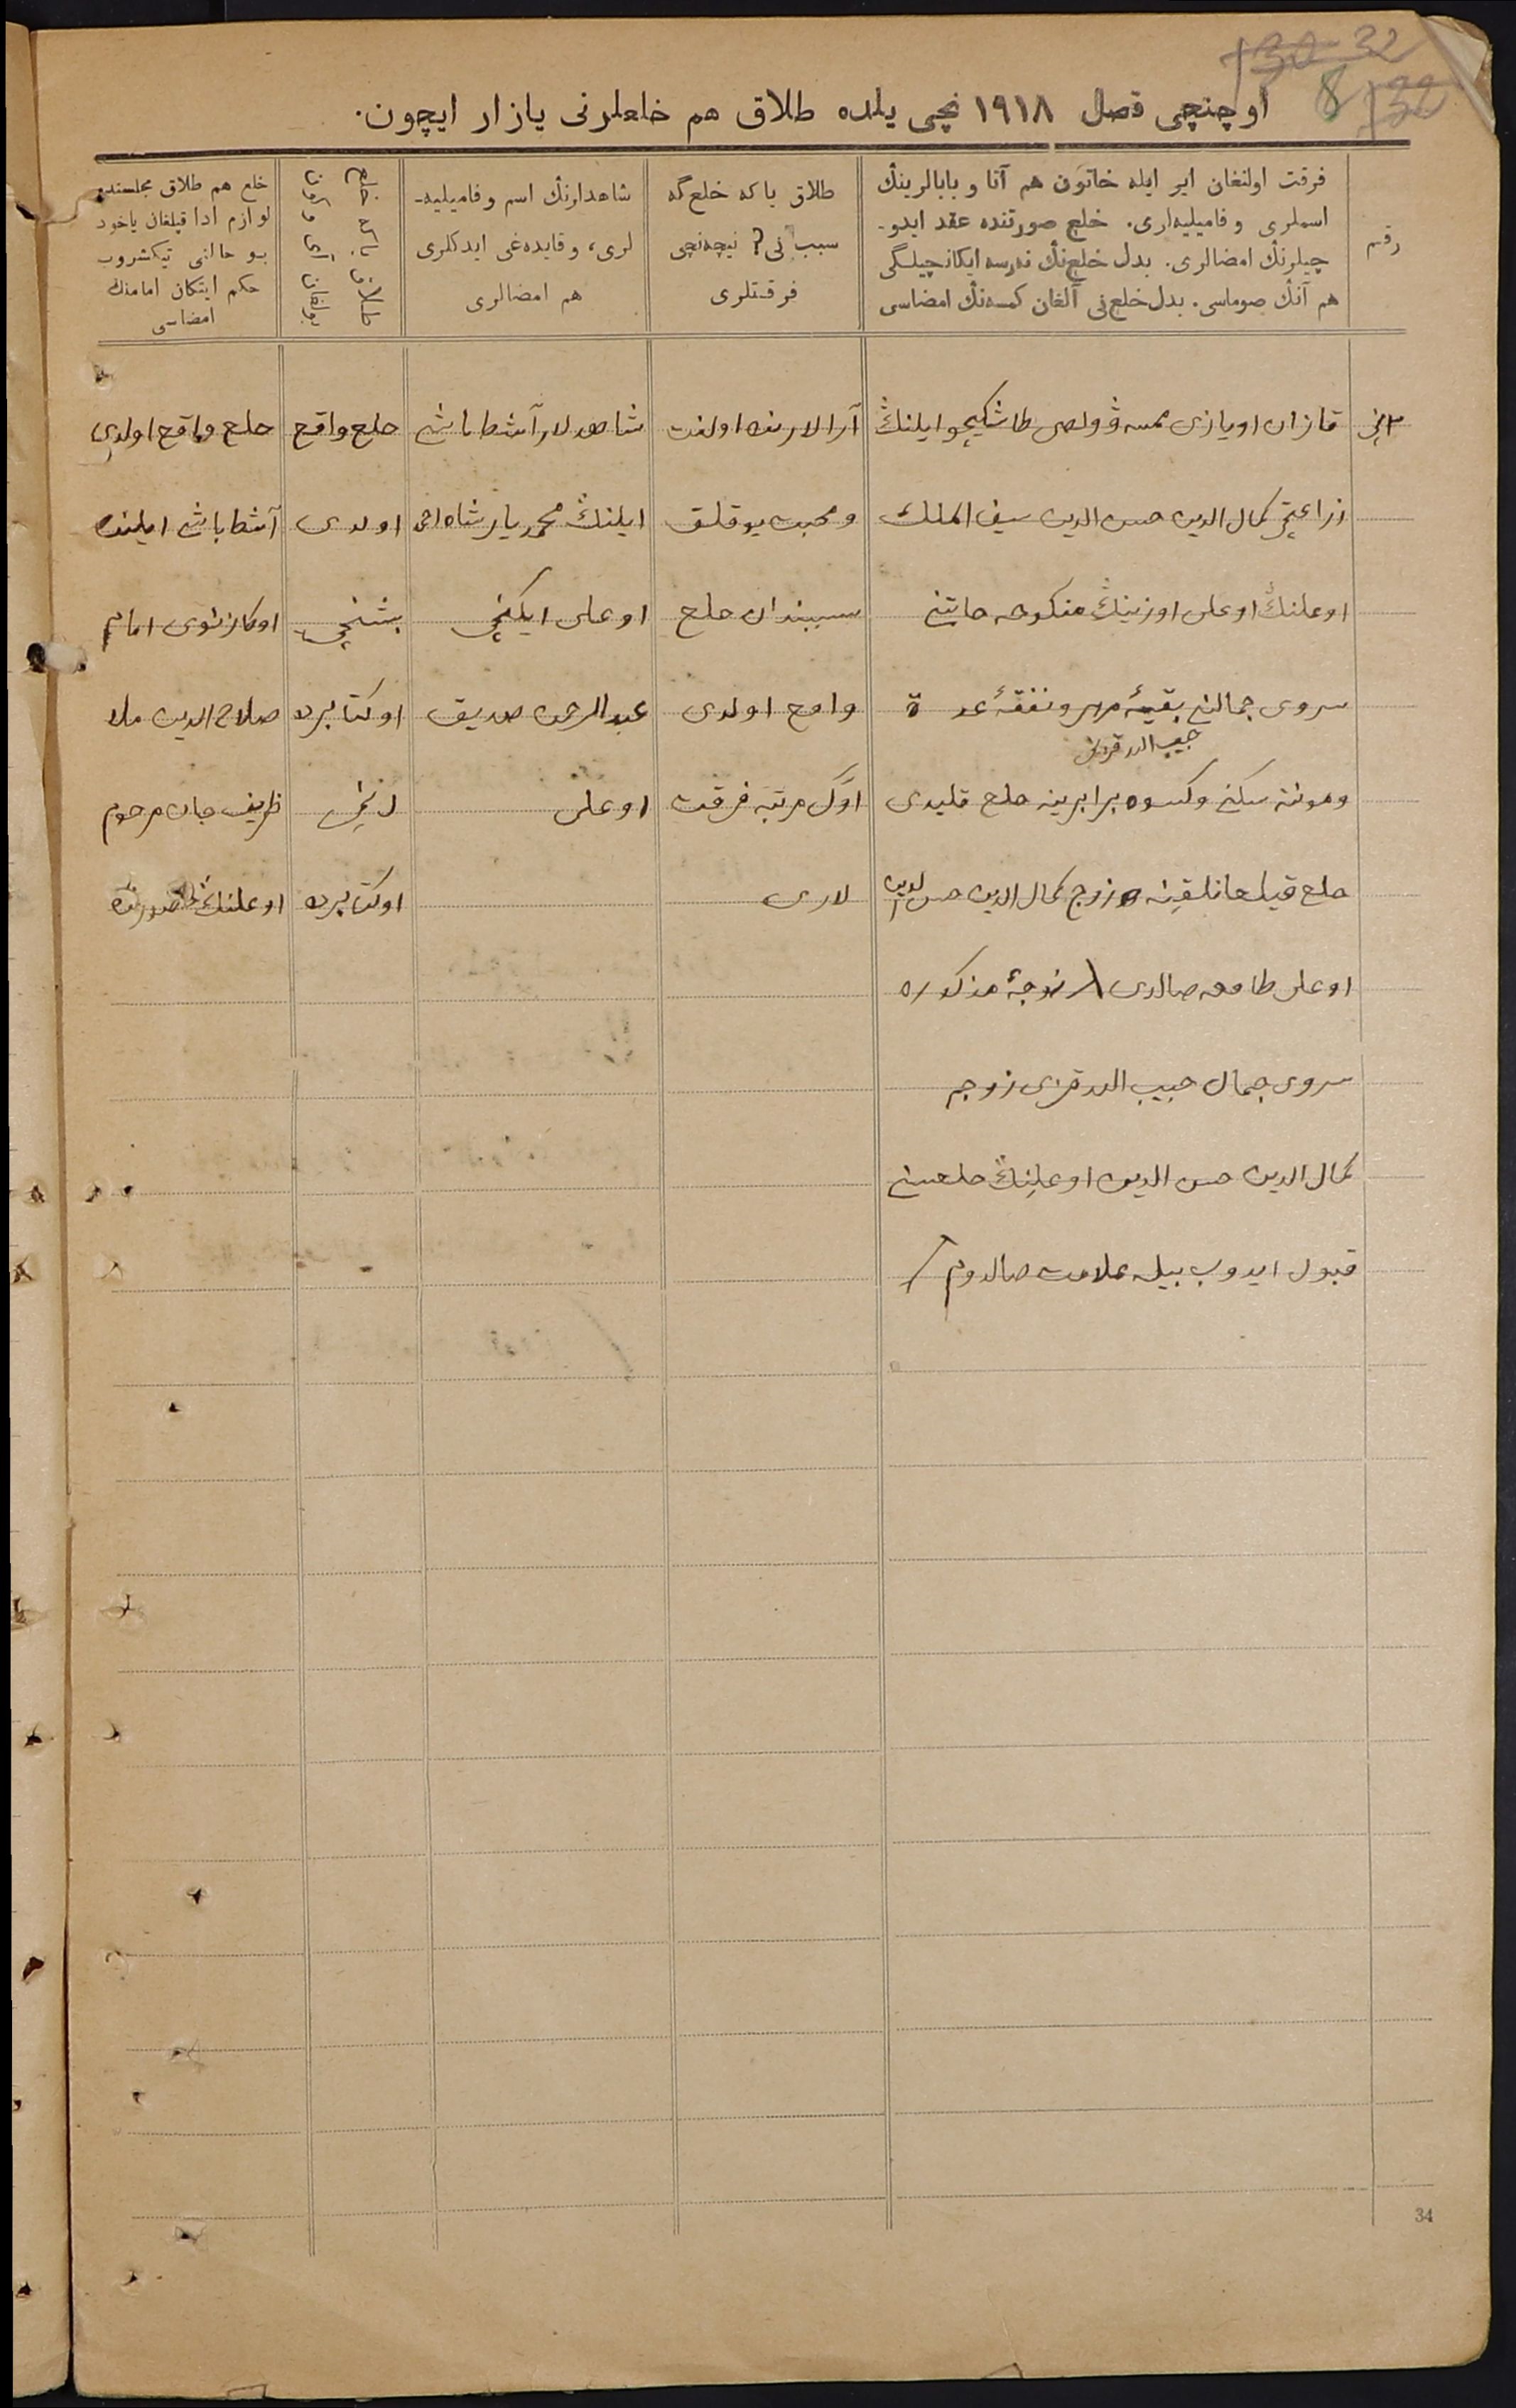 32
8
اوچنچی فصل ١٩١٨ نچی یلده طلاق هم خلعلرنی یازار ایچون.
رقم
فرقت اولنغان ایر ایله خاتون هم آنا و بابالرینڭ
اسملری و فامیلیه‌لری. خلع صورتنده عقد ایدو-
چیلرنڭ امضالری. بدل خلع‌نڭ نه‌رسه ایکانچیلگی
هم آنڭ صوماسی. بدل خلع‌نی آلغان کمسه‌نڭ امضاسی
طلاق یا که خلع گه
سبب نی؟ نیچه‌نچی
فرقتلری
شاهدلرنڭ اسم و فامیلیه-
لری، و قایده‌غی ایدکلری
هم امضالری
خلع یا که طلاق
بولغان آی و کون
خلع هم طلاق مجلسنده
لوازم ادا قیلغان یاخود
بو حالنی تیکشروب
حکم ایتکان امامنڭ
امضاسی
قازان اویازی ولصی طاشکیچو ایلنڭ
زراعتچی کمال الدین حسن الدین سیف الملك
اوغلنڭ اوغلی اوزینڭ منکوحه خاتنی
سروی جمالنی بقیهٔ مهر و نفقهٔ عدة
حبیب الله قزنی
و مونئة سکنی و کسوه برابرینه خلع قلیدی
خلع قیلغانلقینه زوج کمال الدین حسن الدین
اوغلی طامغه صالدی / زوجهٔ مذکوره
سروی جمال حبیب الله قزی زوجم
کمال الدین حسن الدین اوغلینڭ خلعسنی
قبول ایدوب بیله علامت صالدوم /
آرالارنده اولفت
و محبت یوقلق
سببندان خلع
واقع اولدی
اوّل مرتبه فرقت
لاری
شاهدلار آشطاباش
ایلنڭ محمدیار شاه احمد
اوغلی ایکنچی
عبدالرحمن صدیق
اوغلی
خلع واقع
اولدی
بشنچی
اوکتابرده
اوکتابرده
خلع واقع اولدی
آشطاباش ایلنده
اوکازنوی امام
صلاح الدین ملا
ظریف جان مرحوم
اوغلنڭ حضورنده
34